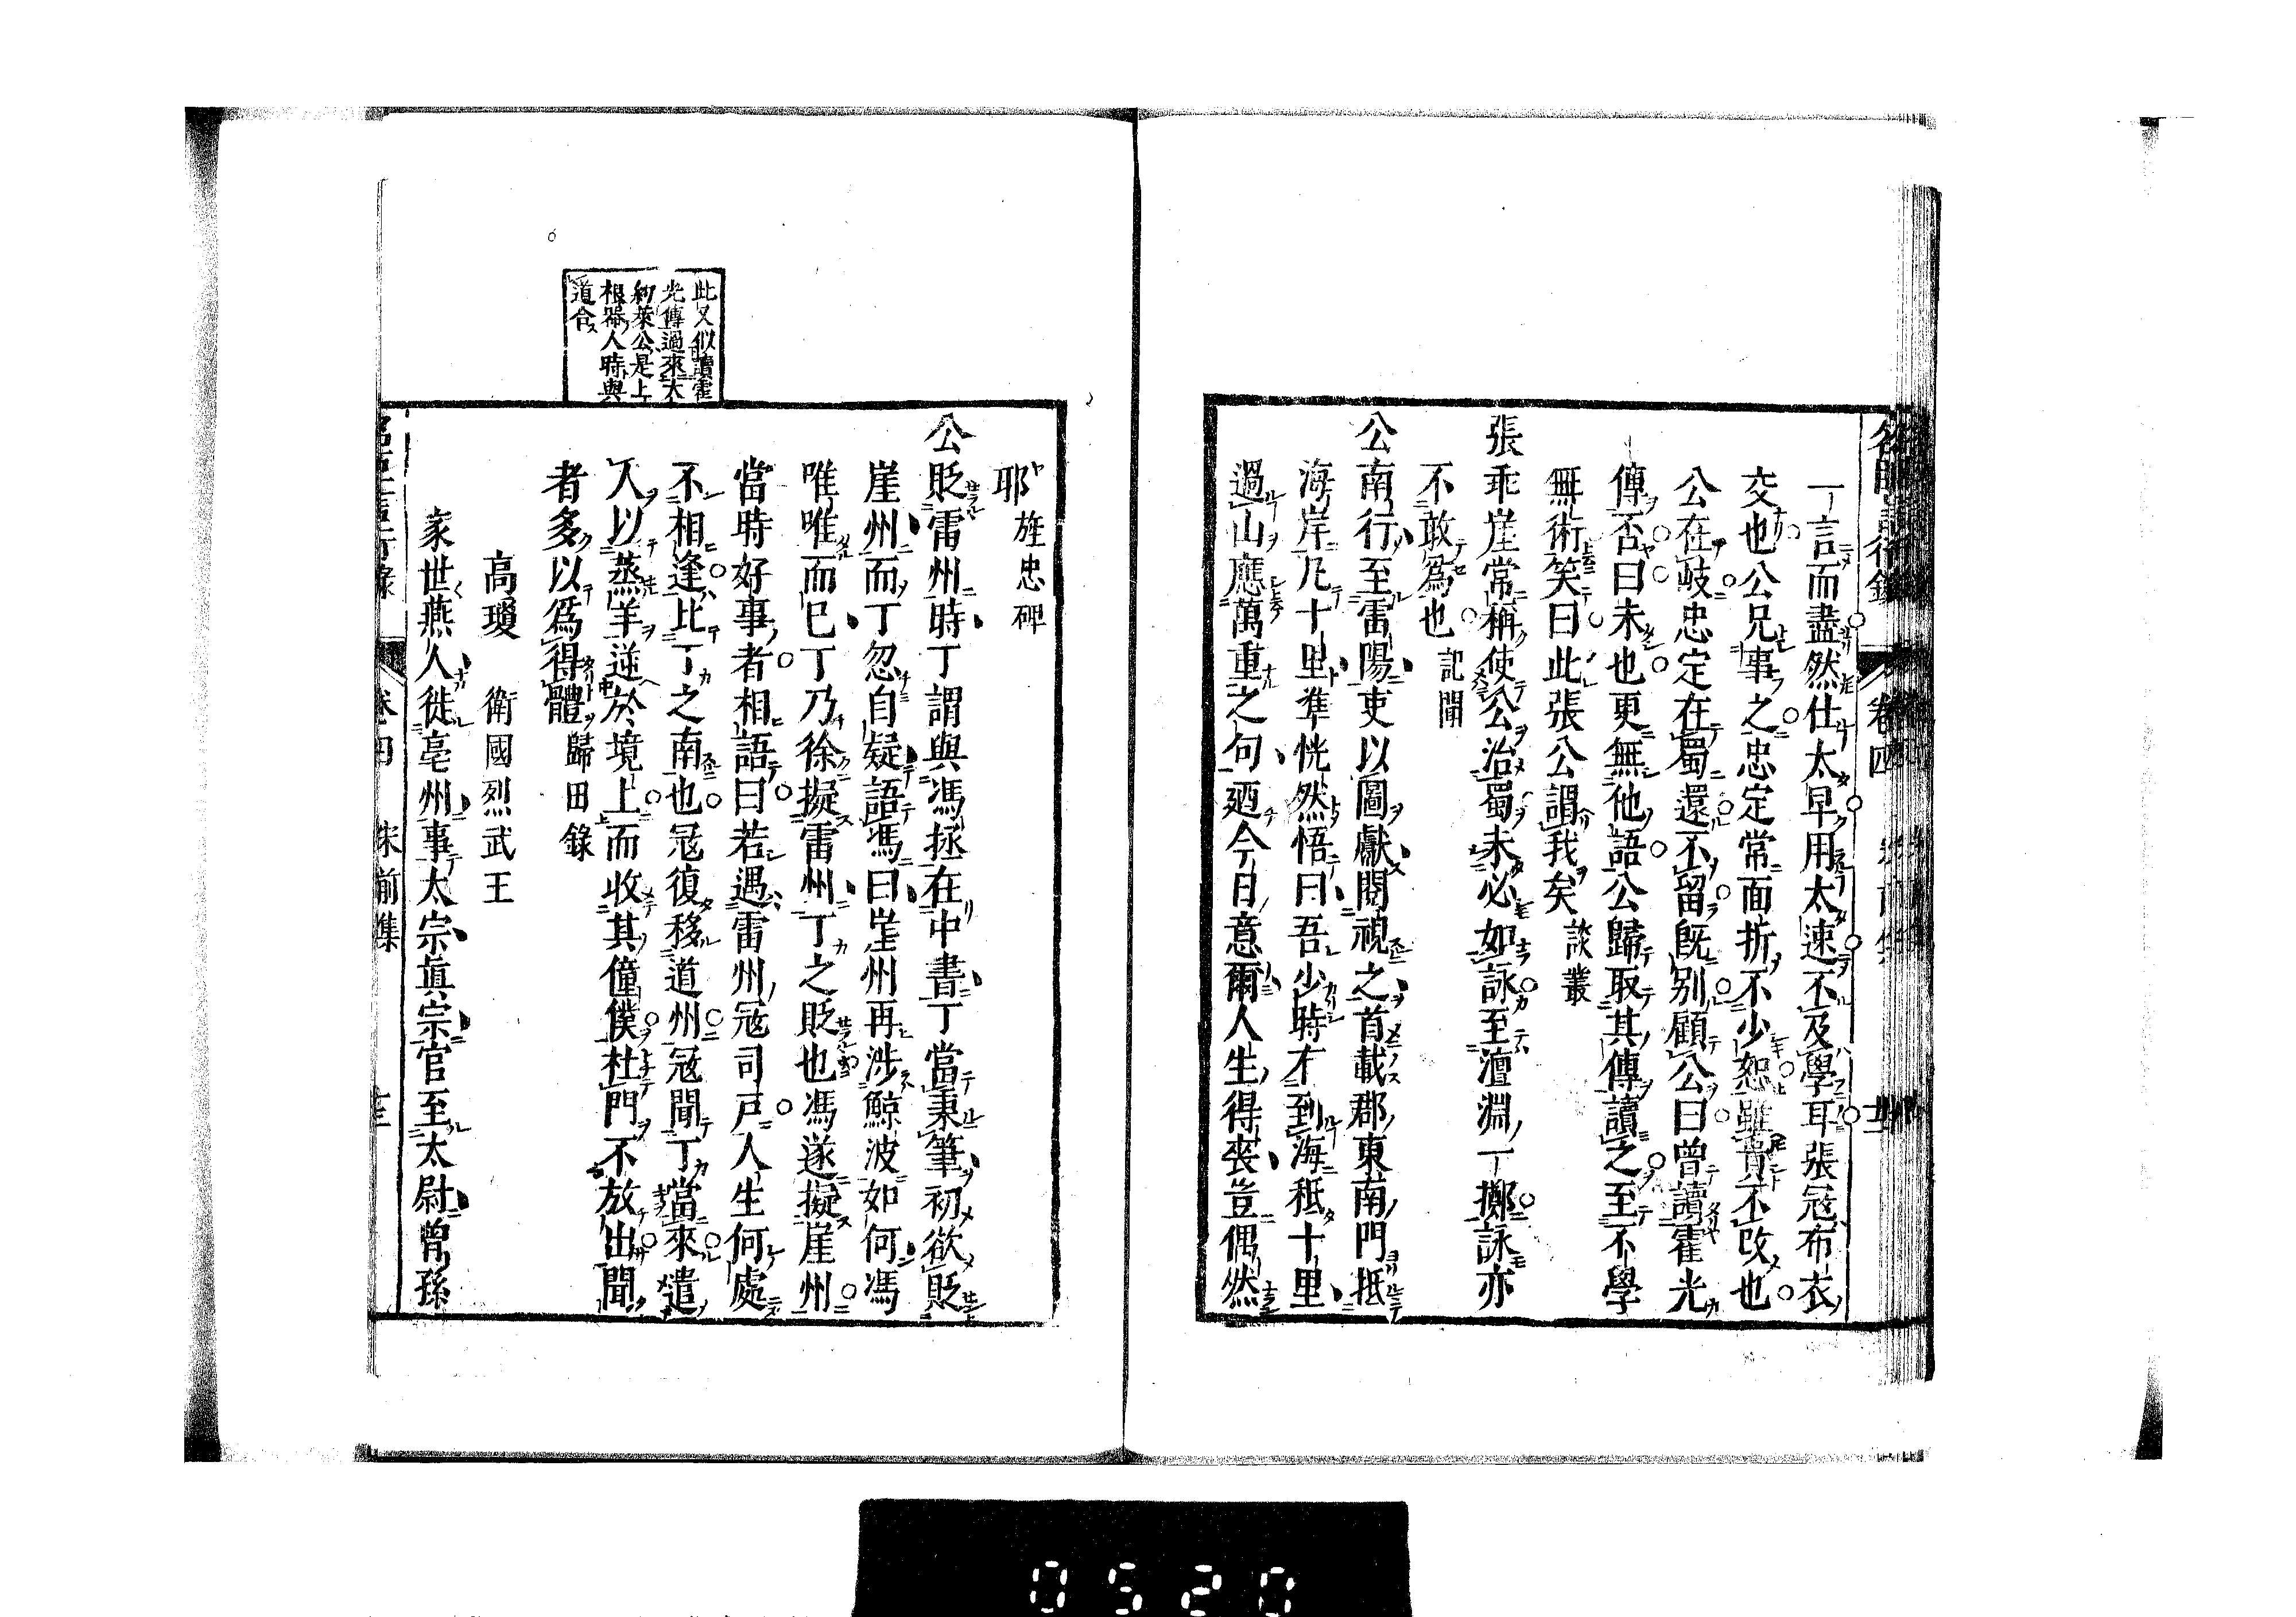 一言而盡然仕太早用太速不及學耳張冦布衣
交也公兄事之忠定常面折不少恕雖貴不改也
公在岐忠定在蜀還不留既别顧公曰曾讀霍光
傳否曰未也更無他語公歸取其傳讀之至不學
無術笑曰此張公謂我矣 談叢
張乖崖常稱使公治蜀未必如詠至澶淵一擲詠亦
不敢為也 記聞
公南行至雷陽吏以圖獻閱視之首載郡東南門抵
海岸凢十里準恍然悟曰吾少時有到海秪十里
過山應萬重之句廼今日意爾人生得丧豈偶然
耶 旌忠碑
公貶雷州時丁謂與馮拯在中書丁當秉筆初欲貶
崖州而丁忽自疑語馮曰崖州再涉鯨波如何馮
唯唯而已丁乃徐擬雷州丁之貶也馮遂擬崖州
當時好事者相語曰若遇雷州冦司戸人生何處
不相逢比丁之南也冦復移道州冦聞丁當來遣
人以蒸羊逆於境上而收其僮僕杜門不放出聞
者多以為得體 歸田錄
此又似讀霍
光傳過來大
約萊公是上
根器人時與
道合
高瓊 衛國烈武王
家世燕人徙亳州事太宗眞宗官至太尉曾孫
卷四